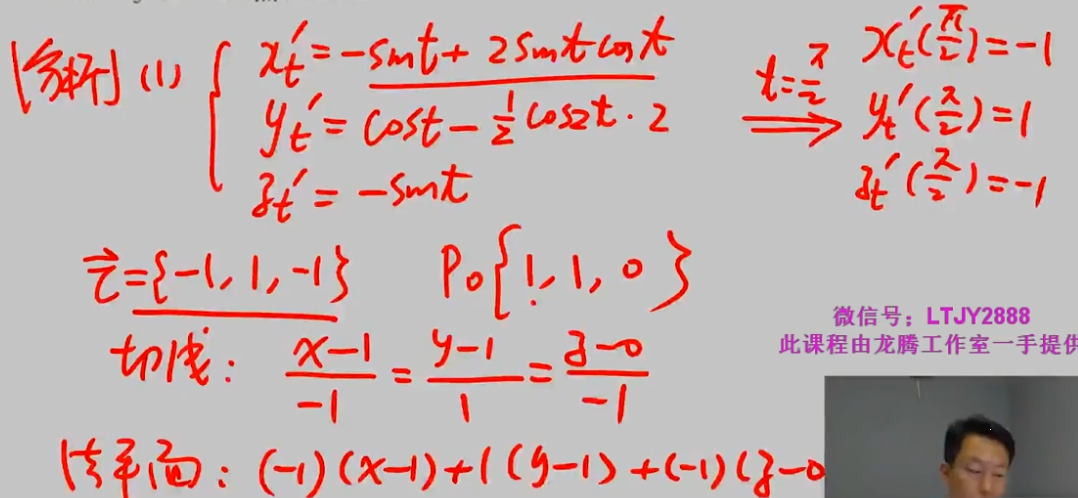 [分析] (1) { x't = -sint + 2sintcost
y't = cost - 1/2 cos2t · 2
z't = -sint
t = π/2 ⟹
x't(π/2) = -1
y't(π/2) = 1
z't(π/2) = -1
τ⃗ = {-1, 1, -1}   P0{1, 1, 0}
切线: (x-1)/-1 = (y-1)/1 = (z-0)/-1
法平面: (-1)(x-1)+1(y-1)+(-1)(z-0
微信号；LTJY2888
此课程由龙腾工作室一手提供